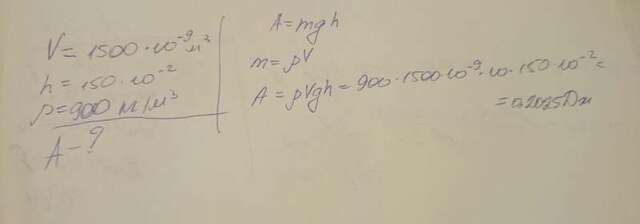 V = 1500 · 10⁻⁹ м³
h = 150 · 10⁻²
ρ = 900 м/м³
A - ?
A = mgh
m = ρV
A = ρVgh = 900 · 1500 · 10⁻⁹ · 10 · 150 · 10⁻² =
= 0,02025 Дж